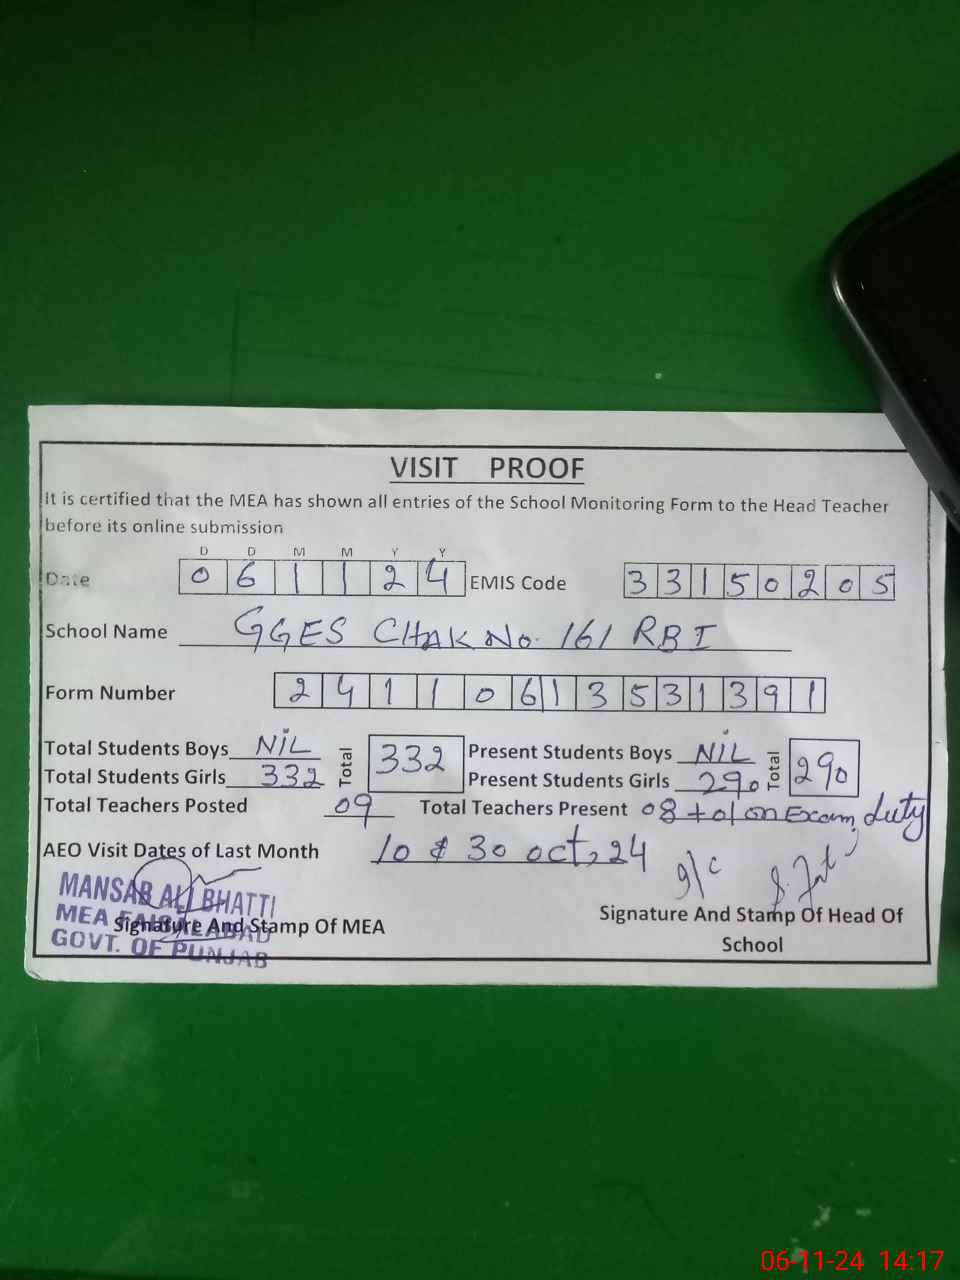 VISIT PROOF
It is certified that the MEA has shown all entries of the School Monitoring Form to the Head Teacher
before its online submission
D D M M Y Y
Date 0 6 1 1 2 4 EMIS Code 3 3 1 5 0 2 0 5
School Name GGES CHAK No. 161 RBI
Form Number 2 4 1 1 0 6 1 3 5 3 1 3 9 1
Total Students Boys NIL Total 332 Present Students Boys NIL Total 290
Total Students Girls 332 Present Students Girls 290
Total Teachers Posted 09 Total Teachers Present 08 + 01 on Exam duty
AEO Visit Dates of Last Month 10 & 30 oct, 24
MANSAB ALI BHATTI
MEA FAISALABAD
GOVT. OF PUNJAB
Signature And Stamp Of MEA
I/C
Signature And Stamp Of Head Of
School
06-11-24 14:17